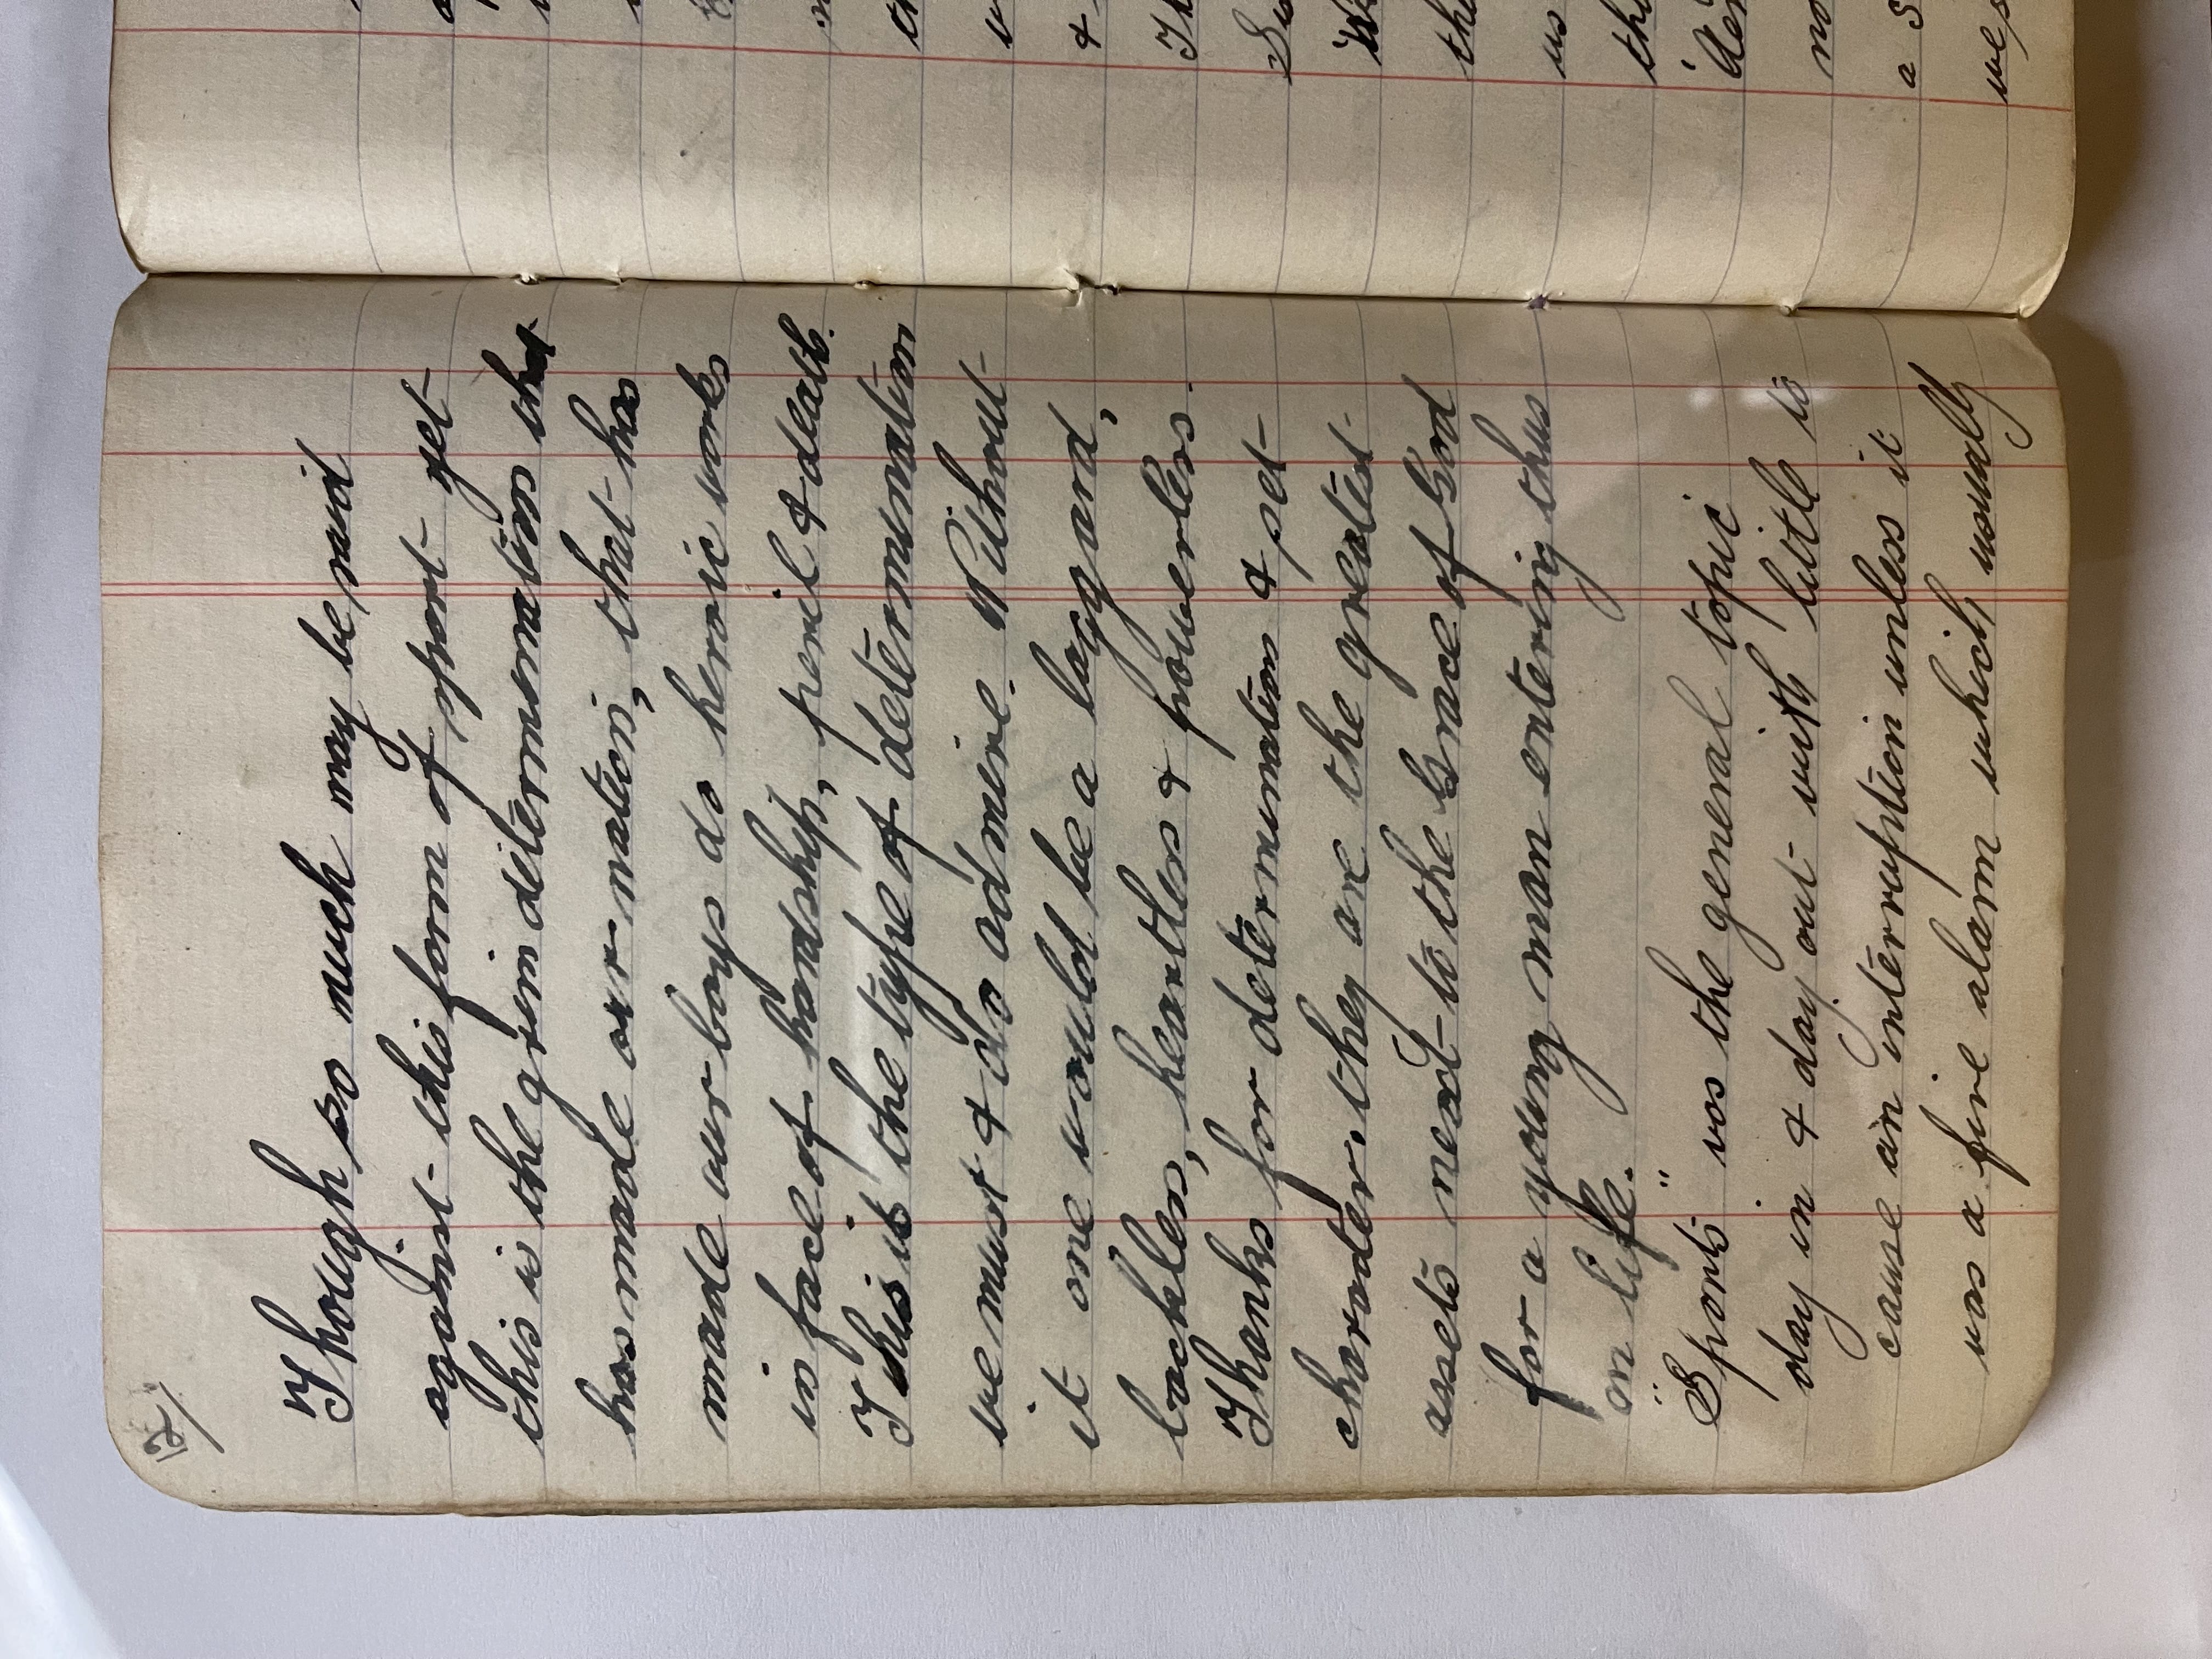 12/
Though so much may be said
against this form of sport yet
this is the grim determination that
has made our nation, that has
made our boys do heroic works
in face of hardship, peril & death.
This is the type of determination
we must & do admire. Without
it one would be a laggard,
backless, heartless & powerless.
Thanks for determination & set
character. they are the greatest
assets next to the Grace of God
for a young man entering thus
on life.
"Sports" was the general topic
day in & day out with little to
cause an interruption unless it
was a fire alarm which usually
th
&
Th
the
us
no
a S